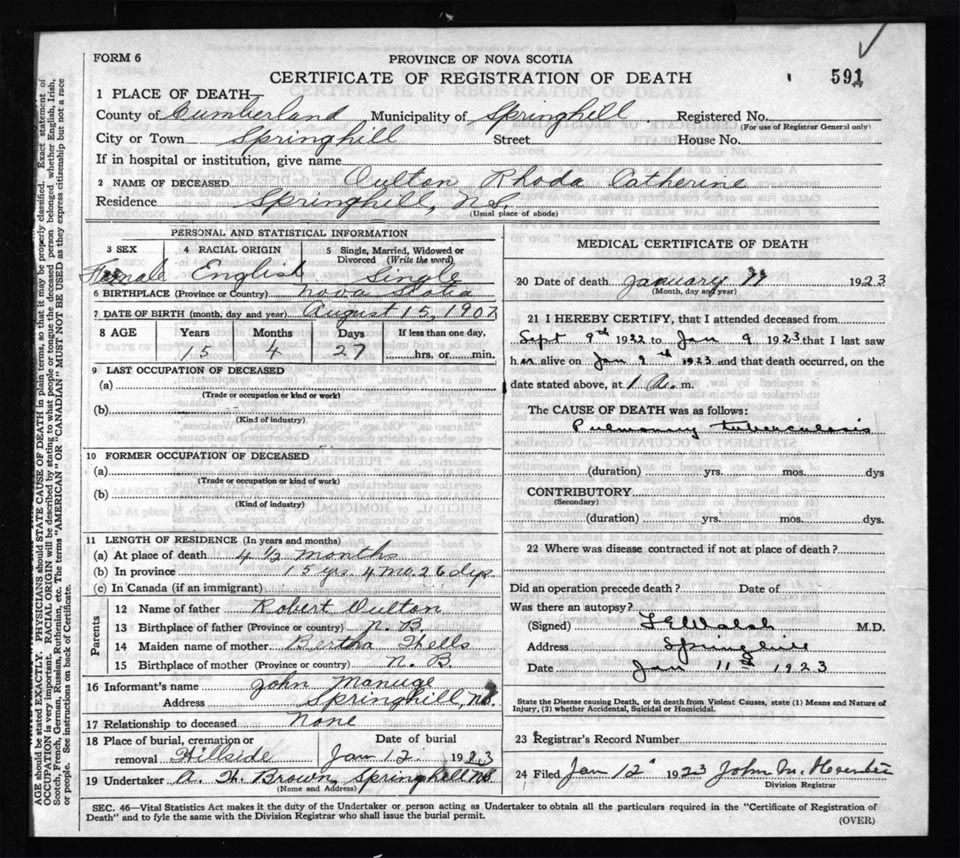 FORM 6
PROVINCE OF NOVA SCOTIA
CERTIFICATE OF REGISTRATION OF DEATH
591
1 PLACE OF DEATH—
County of Cumberland Municipality of Springhill Registered No.
(For use of Registrar General only)
City or Town Springhill Street House No.
If in hospital or institution, give name
2 NAME OF DECEASED Oulton Rhoda Catherine
Residence Springhill, N.S.
(Usual place of abode)
PERSONAL AND STATISTICAL INFORMATION
3 SEX 4 RACIAL ORIGIN 5 Single, Married, Widowed or
Divorced (Write the word)
Female English Single
6 BIRTHPLACE (Province or Country) Nova Scotia
7 DATE OF BIRTH (month, day and year) August 15, 1907
8 AGE Years Months Days If less than one day,
15 4 27 hrs. or min.
9 LAST OCCUPATION OF DECEASED
(a)
(Trade or occupation or kind or work)
(b)
(Kind of industry)
10 FORMER OCCUPATION OF DECEASED
(a)
(Trade or occupation or kind of work)
(b)
(Kind of industry)
11 LENGTH OF RESIDENCE (In years and months)
(a) At place of death 4 1/2 months
(b) In province 15 yrs. 4 mo. 26 dys
(c) In Canada (if an immigrant)
Parents
12 Name of father Robert Oulton
13 Birthplace of father (Province or country) N. B.
14 Maiden name of mother Bertha
15 Birthplace of mother (Province or country) N. B.
16 Informant's name John Manuge
Address Springhill, N.S.
17 Relationship to deceased None
18 Place of burial, cremation or Date of burial
removal Hillside Jan 12 1923
19 Undertaker A. H. Brown, Springhill N.S.
(Name and Address)
MEDICAL CERTIFICATE OF DEATH
20 Date of death January 11 1923
(Month, day and year)
21 I HEREBY CERTIFY, that I attended deceased from
Sept 9th 1932 to Jan 9 1923 that I last saw
her alive on Jan 9th 1923 and that death occurred, on the
date stated above, at 1 A. m.
The CAUSE OF DEATH was as follows:
Pulmonary tuberculosis
(duration) yrs. mos. dys
CONTRIBUTORY
(Secondary)
(duration) yrs. mos. dys.
22 Where was disease contracted if not at place of death?
Did an operation precede death? Date of
Was there an autopsy?
(Signed) Walsh M.D.
Address Springhill
Date Jan 11th 1923
State the Disease causing Death, or in death from Violent Causes, state (1) Means and Nature of
Injury, (2) whether Accidental, Suicidal or Homicidal.
23 Registrar's Record Number
24 Filed Jan 12 1923 John M.
Division Registrar
SEC. 46—Vital Statistics Act makes it the duty of the Undertaker or person acting as Undertaker to obtain all the particulars required in the "Certificate of Registration of
Death" and to fyle the same with the Division Registrar who shall issue the burial permit.
(OVER)
AGE should be stated EXACTLY. PHYSICIANS should STATE CAUSE OF DEATH in plain terms, so that it may be properly classified. Exact statement of
OCCUPATION is very important. RACIAL ORIGIN will be described by stating to what people or tongue the deceased person belonged, whether English, Irish,
Scotch, French, German, Russian, Ruthenian, etc. The terms "AMERICAN" OR "CANADIAN" MUST NOT BE USED as they express citizenship but not a race
or people. See instructions on back of Certificate.